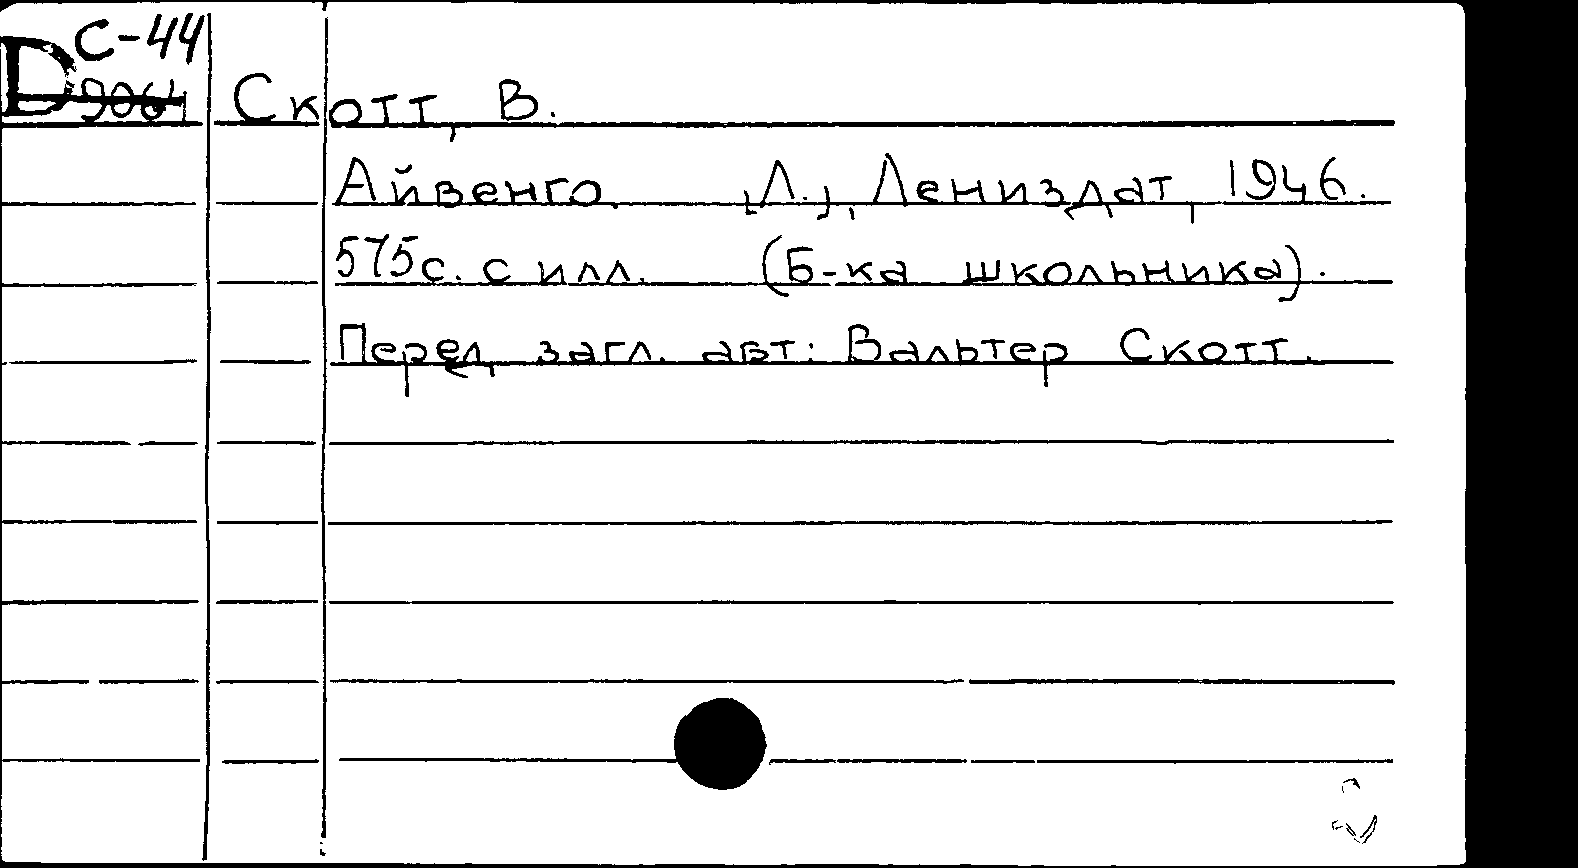 С-44
D 9064
Скотт, В.
Айвенго. [Л.], Лениздат, 1946.
575с. с илл. (Б-ка школьника).
Перед загл. авт: Вальтер Скотт.